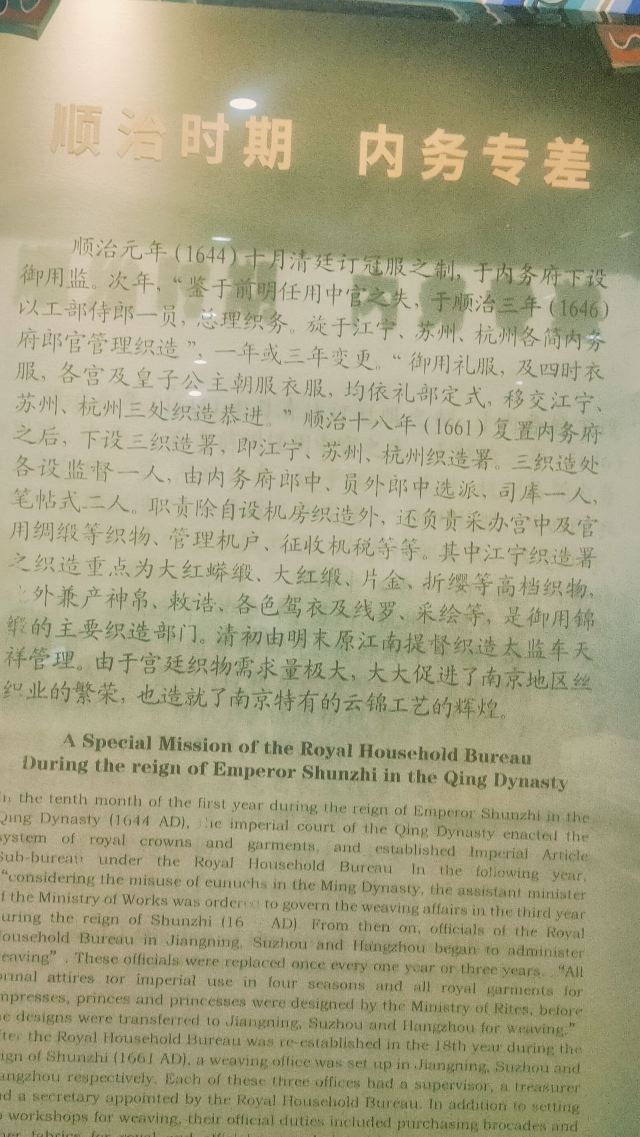 顺治时期 内务专差
顺治元年(1644)十月清廷订冠服之制,于内务府下设
御用监。次年,“鉴于前明任用中官之失,于顺治三年(1646)
以工部侍郎一员,总理织务。旋于江宁、苏州、杭州各简内务
府郎官管理织造”,一年或三年变更。“御用礼服,及四时衣
服,各宫及皇子公主朝服衣服,均依礼部定式,移交江宁、
苏州、杭州三处织造恭进。”顺治十八年(1661)复置内务府
之后,下设三织造署,即江宁、苏州、杭州织造署。三织造处
各设监督一人,由内务府郎中、员外郎中选派,司库一人,
笔帖式二人。职责除自设机房织造外,还负责采办宫中及官
用绸缎等织物、管理机户、征收机税等等。其中江宁织造署
之织造重点为大红蟒缎、大红缎、片金、折缨等高档织物,
外兼产神帛、敕诰、各色驾衣及线罗、采绘等,是御用锦
缎的主要织造部门。清初由明末原江南提督织造太监车天
祥管理。由于宫廷织物需求量极大,大大促进了南京地区丝
织业的繁荣,也造就了南京特有的云锦工艺的辉煌。
A Special Mission of the Royal Household Bureau
During the reign of Emperor Shunzhi in the Qing Dynasty
the tenth month of the first year during the reign of Emperor Shunzhi in the
Qing Dynasty (1644 AD), the imperial court of the Qing Dynasty enacted the
system of royal crowns and garments, and established Imperial Article
Sub-bureau under the Royal Household Bureau In the following year,
“considering the misuse of eunuchs in the Ming Dynasty, the assistant minister
f the Ministry of Works was ordered to govern the weaving affairs in the third year
uring the reign of Shunzhi (16 AD) From then on, officials of the Royal
ousehold Bureau in Jiangning, Suzhou and Hangzhou began to administer
eaving”. These officials were replaced once every one year or three years. “All
ormal attires for imperial use in four seasons and all royal garments for
mpresses, princes and princesses were designed by the Ministry of Rites, before
e designs were transferred to Jiangning, Suzhou and Hangzhou for weaving.”
fter the Royal Household Bureau was re-established in the 18th year during the
ign of Shunzhi (1661 AD), a weaving office was set up in Jiangning, Suzhou and
angzhou respectively. Each of these three offices had a supervisor, a treasurer
d a secretary appointed by the Royal Household Bureau. In addition to setting
workshops for weaving, their official duties included purchasing brocades and